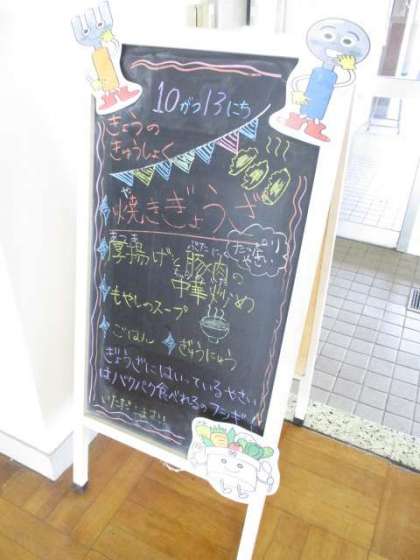 10がつ13にち
きょうの
きゅうしょく
焼きぎょうざ
や
厚揚げと豚肉の
あつあ
ぶたにく
たっぷり
やさい
中華炒め
もやしのスープ
ごはん ぎゅうにゅう
ぎょうざにはいっているやさい
はパクパク食べれるのフシギ!
いただきまぁす